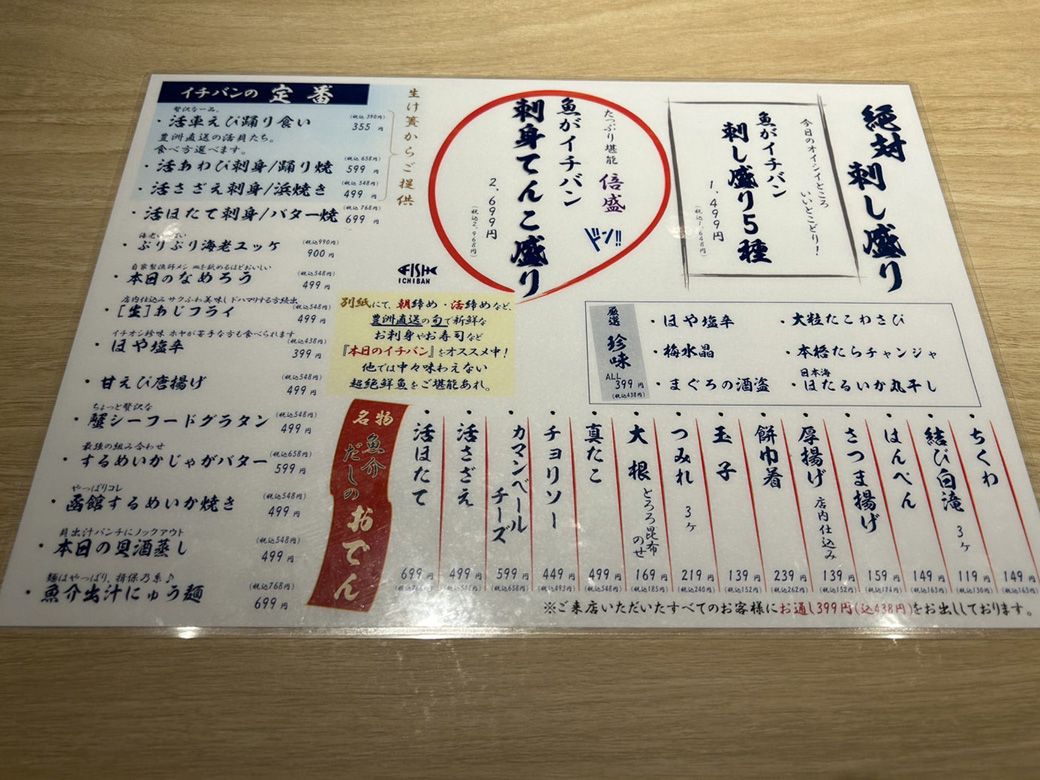 絶対 刺し盛り
今日のオイシイところ
いいとこどり!
魚がイチバン
刺し盛り5種
1,499円
(税込1,648円)
たっぷり堪能 倍盛
魚がイチバン
刺身てんこ盛り
ドン!!
2,699円
(税込2,968円)
FISH
ICHIBAN
イチバンの 定番
生け簀からご提供
贅沢な一品。
・活車えび踊り食い (税込390円) 355円
豊洲直送の活貝たち。
食べ方選べます。
・活あわび刺身/踊り焼 (税込658円) 599円
・活さざえ刺身/浜焼き (税込548円) 499円
・活ほたて刺身/バター焼 (税込768円) 699円
・ぷりぷり海老ユッケ (税込990円) 900円
・本日のなめろう (税込548円) 499円
店内仕込み サクふわ美味し ドハマりする方続出
・[生]あじフライ (税込548円) 499円
イチオシ珍味 ホヤが苦手な方も食べられます。
・ほや塩辛 (税込438円) 399円
・甘えび唐揚げ (税込548円) 499円
ちょっと贅沢な
・蟹シーフードグラタン (税込548円) 499円
最強の組み合わせ
・するめいかじゃがバター (税込658円) 599円
やっぱりコレ
・函館するめいか焼き (税込548円) 499円
貝出汁パンチにノックアウト
・本日の貝酒蒸し (税込548円) 499円
麺はやっぱり、揖保乃糸♪
・魚介出汁にゅう麺 (税込768円) 699円
別紙にて、朝締め・活締めなど、
豊洲直送の旬で新鮮な
お刺身やお寿司など
『本日のイチバン』をオススメ中!
他では中々味わえない
超絶鮮魚をご堪能あれ。
厳選 珍味
ALL 399円
(税込438円)
・ほや塩辛
・大粒たこわさび
・梅水晶
・本格たらチャンジャ
・まぐろの酒盗
日本海
・ほたるいか丸干し
名物 魚介だしのおでん
・ちくわ 149円 (税込163円)
・結び白滝 3ヶ 119円 (税込130円)
・はんぺん 149円 (税込163円)
・さつま揚げ 159円 (税込174円)
・厚揚げ 店内仕込み 139円 (税込152円)
・餅巾着 239円 (税込262円)
・玉子 139円 (税込152円)
・つみれ 3ヶ 219円 (税込240円)
・大根 とろろ昆布のせ 169円 (税込185円)
・真たこ 499円 (税込548円)
・チョリソー 449円 (税込493円)
・カマンベールチーズ 599円 (税込658円)
・活さざえ 499円
・活ほたて 699円
※ご来店いただいたすべてのお客様にお通し399円(込438円)をお出ししております。